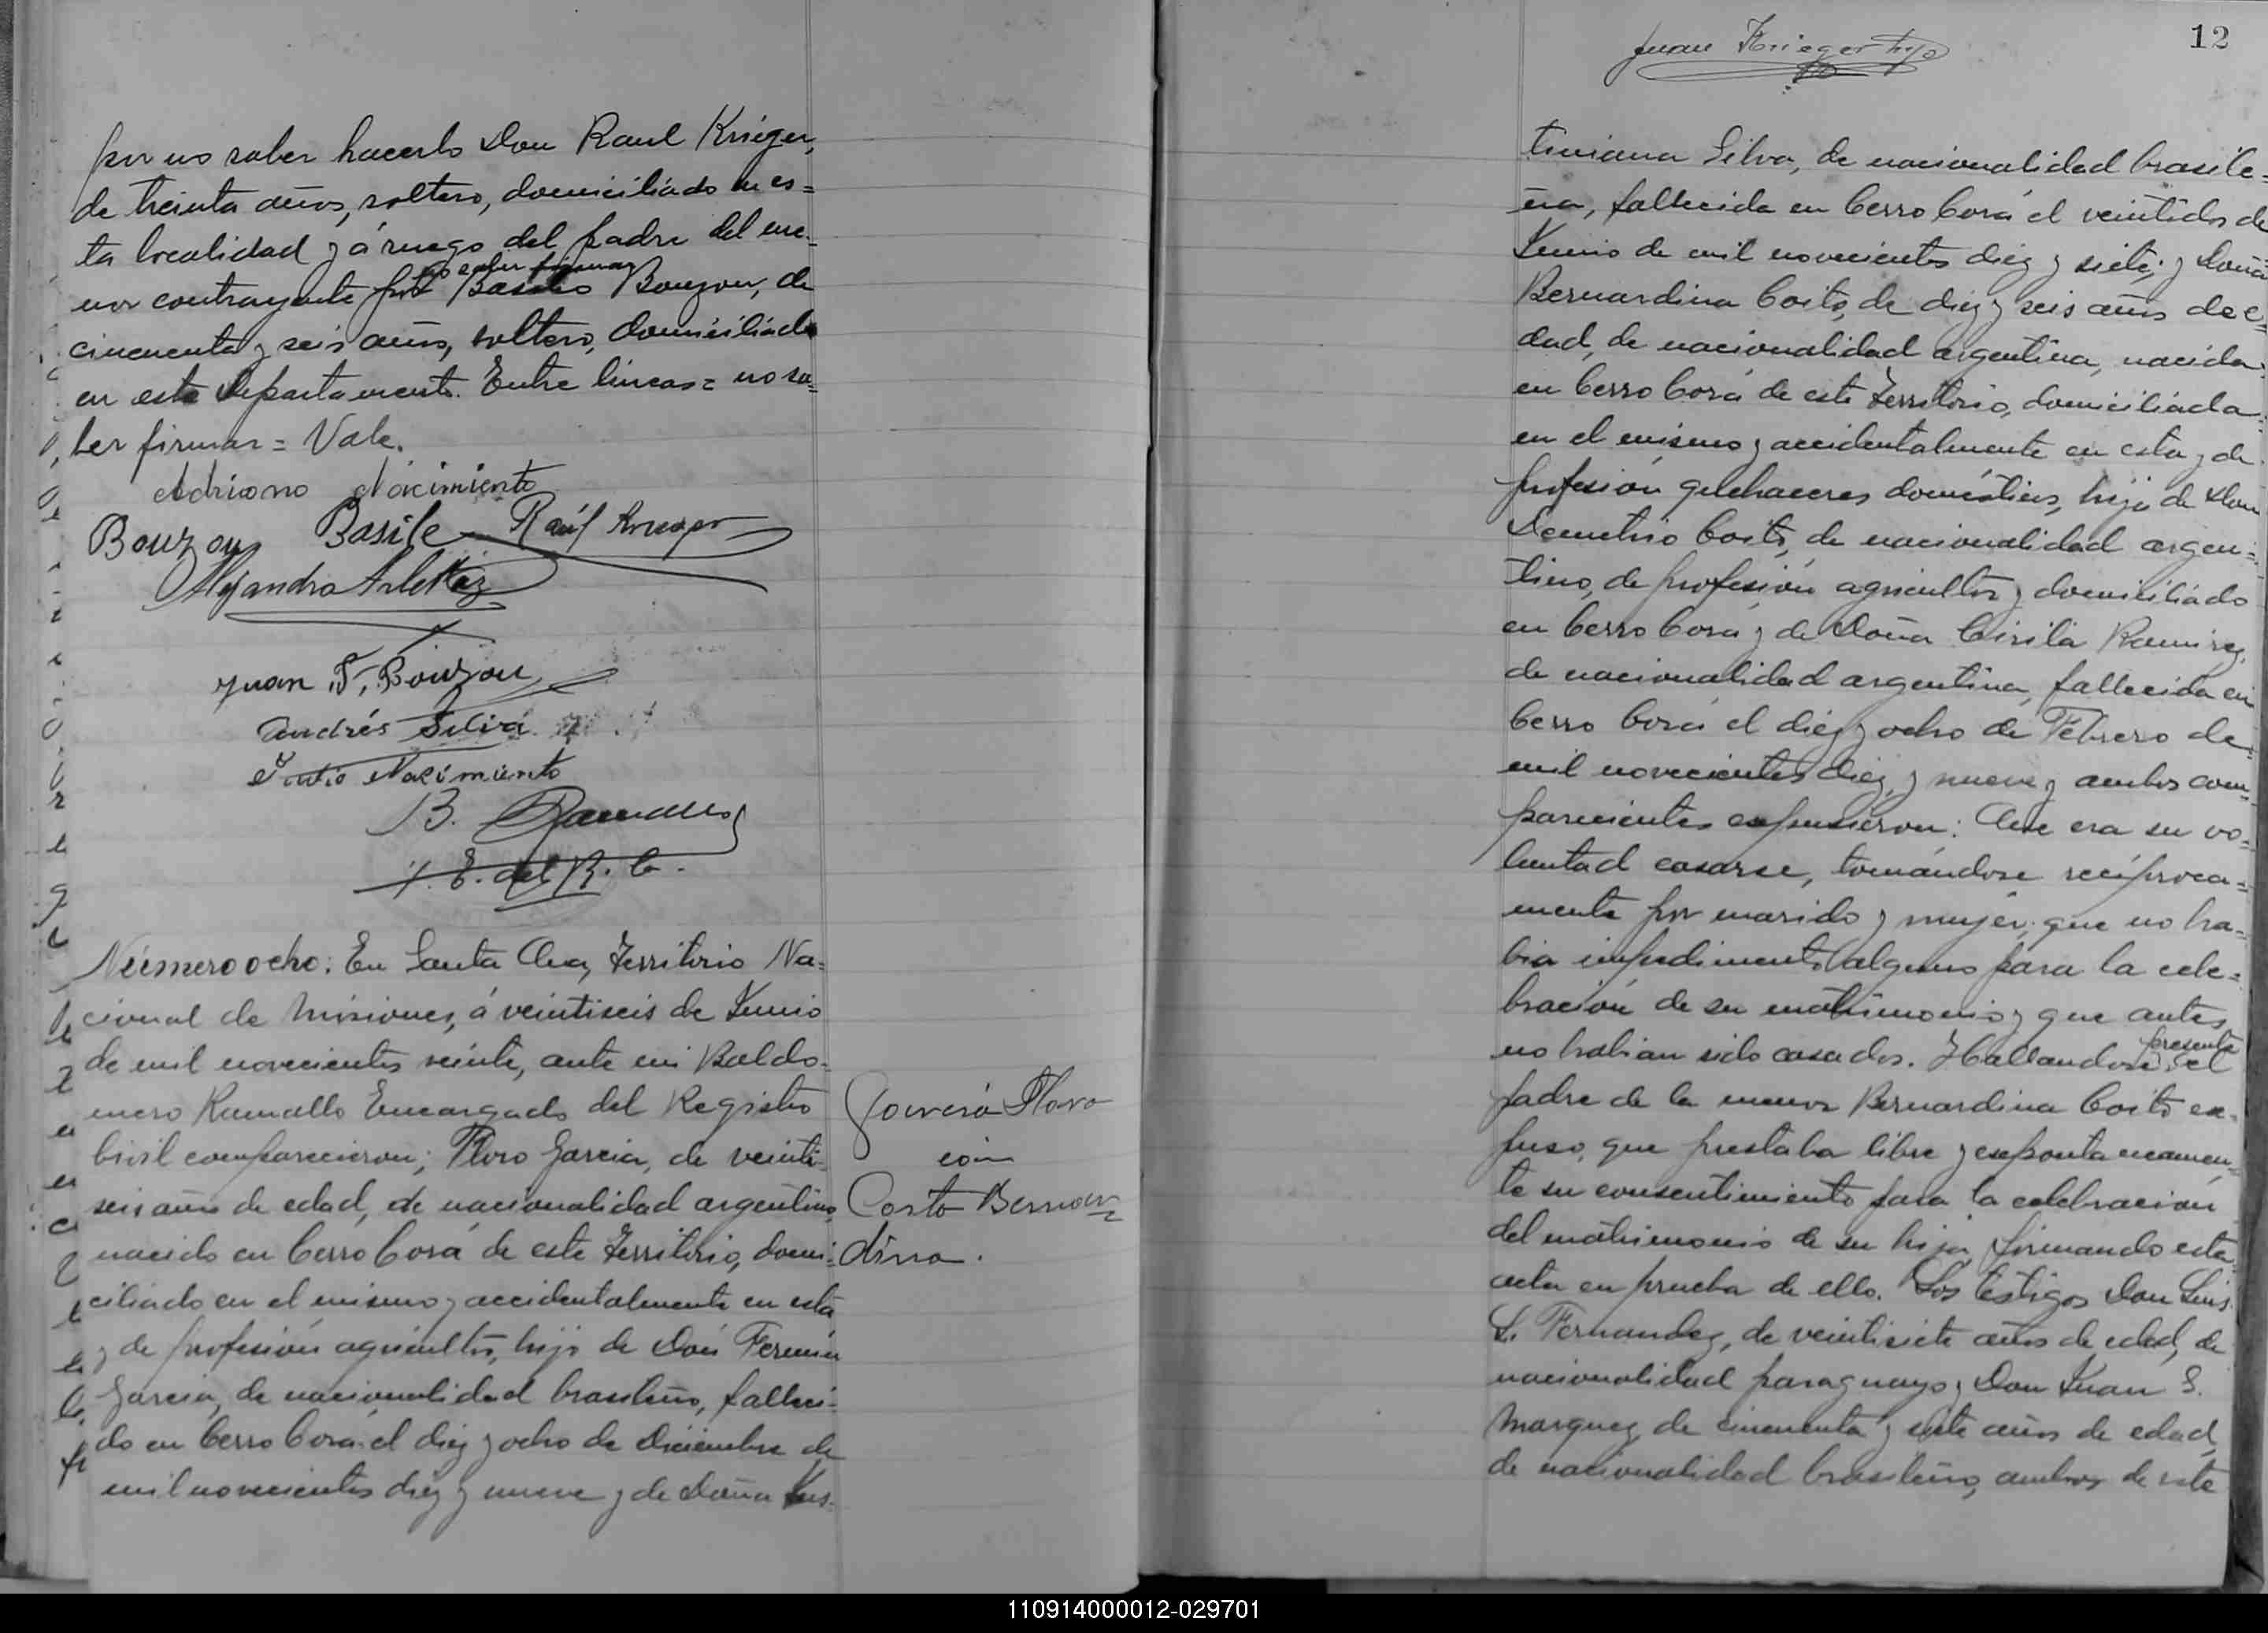 por no saber hacerlo Don Raul Krieger,
de treinta años, soltero, domiciliado en es=
ta localidad y á ruego del padre del me-
no saber firmar
nor contrayente por Basilio Bouzon, de
cincuenta y seis años, soltero, domiciliado
en este Departamento. Entre lineas= no sa=
ber firmar= Vale.
Adriano Nacimiento
Bouzon Basile Raúl Krieger
Alejandro Arlettaz
Juan F. Bouzon
Andrés Silva
Nacimiento
B. Ramallo
E. del R. C.
Número ocho: En Santa Ana, Territorio Na=
cional de Misiones, á veintiseis de Junio
de mil novecientos veinte, ante mi Baldo-
mero Ramallo Encargado del Registro
Civil comparecieron; Floro Garcia, de veinti-
seis años de edad, de nacionalidad argentino,
nacido en Cerro Corá de este Territorio, domi-
ciliado en el mismo y accidentalmente en esta
y de profesión agricultor, hijo de Don Fermin
Garcia, de nacionalidad brasileño, falleci-
do en Cerro Corá el diez y ocho de Diciembre de
mil novecientos diez y nueve y de Doña Jus-
Garcia Floro
con
Costo Bernar=
dina.
12
Juan Krieger hijo
tiniana Silva, de nacionalidad brasile=
ña, fallecida en Cerro Corá el veintidos de
Junio de mil novecientos diez y siete; y Doña
Bernardina Coito, de diez y seis años de e-
dad, de nacionalidad argentina, nacida
en Cerro Corá de este Territorio, domiciliada
en el mismo y accidentalmente en esta y de
profesión quehaceres domésticos, hija de Don
Demetrio Coito, de nacionalidad argen=
tino, de profesión agricultor y domiciliado
en Cerro Corá y de Doña Cirila Ramirez,
de nacionalidad argentina, fallecida en
Cerro Corá el diez y ocho de Febrero de
mil novecientos diez y nueve y ambos com-
parecientes expusieron: Que era su vo=
luntad casarse, tomándose recíproca=
mente por marido y mujer: que no ha-
bia impedimento alguno para la cele=
bración de su matrimonio y que antes
presente
no habian sido casados. Hallandose el
padre de la menor Bernardina Coito ex-
puso, que prestaba libre y espontaneamen-
te su consentimiento para la celebración
del matrimonio de su hija, firmando esta
acta en prueba de ello. Los testigos Don Luis
L. Fernandez, de veintisiete años de edad, de
nacionalidad paraguayo y Don Juan S.
Marquez, de cincuenta y siete años de edad,
de nacionalidad brasileño, ambos de este